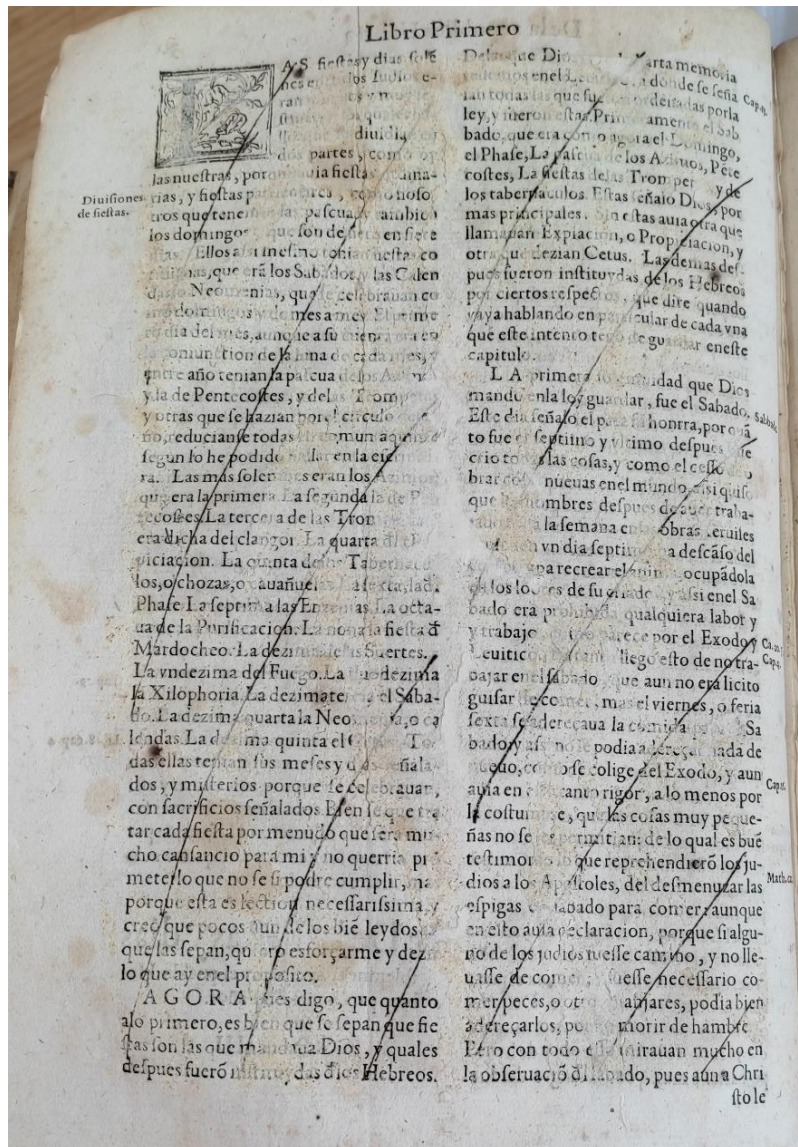 Libro Primero
AS fiestas y dias solē
nes los Iudios e-
ran
diuidia
dos partes, como
las nuestras, por auia fiestas
Diuisiones
de fiestas.
rias, y fiestas como noso
tros que tenemos la pascua, y tambien
los domingos, que son de siete en siete
dias. Ellos assi mesmo tenian fiestas co
que erã los Sabados, y las Calen
das, o Neomenias, que se celebrauan co
mo domingos y de mes a mes. El prime
ro dia del mes, aunque a su cuenta era en
la coniunction de la luna de cada mes, y
entre año tenian la pascua de los
y la de Pentecostes, y de las
y otras que se hazian por el circulo
ño, reducianse todas
segun lo he podido hallar en la
ra. Las mas solennes eran los
que era la primera. La segunda la de
tecostes. La tercera de las Trom
era dicha del clangor. La quarta
piciacion. La quinta de los Tabernacu
los, o chozas, o cauañuelas. La sexta, la đl
Phase. La septima las Enzenias. La octa-
ua de la Purificacion. La nona la fiesta đ
Mardocheo. La dezima de las Suertes.
La vndezima del Fuego. La duodezima
la Xilophoria. La dezimatercia el Saba-
do. La dezima quarta la Neomenia, o ca
lendas. La dezima quinta el To
das ellas tenian sus meses y dias señala
dos, y misterios porque se celebrauan,
con sacrificios señalados. Bien se que tra
tar cada fiesta por menudo que sera mu
cho cansancio para mi y no querria pro
meter lo que no se si podre cumplir, mas
porque esta es lection necessarissima, y
creo que pocos aun de los biē leydos,
que las sepan, quiero esforçarme y dezir
lo que ay enel proposito.
AGORA pues digo, que quanto
alo primero, es bien que se sepan que fie
stas son las que mandaua Dios, y quales
despues fuerō instituydas đlos Hebreos.
De las que Dios memoria
tenemos enel donde se seña Cap. 23.
lan todas las que fueron ordenadas por la
ley, y fueron estas. Primeramente el Sab
bado, que era como agora el Domingo,
el Phase, La pascua de los Azimos, Pēte
costes, La fiesta de las Trompetas y de
los tabernaculos. Estas señalo Dios, por
mas principales. Sin estas auia otra que
llamauan Expiacion, o Propiciacion, y
otra que dezian Cetus. Las demas des-
pues fueron instituydas de los Hebreos
por ciertos respectos, que dire quando
vaya hablando en particular de cada vna
que este intento tēgo de guardar eneste
capitulo.
LA primera solennidad que Dios
mando en la ley guardar, fue el Sabado, Sabbado.
Este dia señalo el para su honrra, por quā
to fue el septimo y vltimo despues que
crio todas las cosas, y como el cesso de o
brar cosas nueuas enel mundo, assi quiso
que los hombres despues de auer traba-
jado la semana en obras seruiles
en vn dia septimo descāso del
para recrear el anima ocupādola
en los loores de su criador, y assi enel Sa
bado era prohibida qualquiera labor y
y trabajo parece por el Exodo y Ca. 20.
Leuitico llego esto de no tra- Cap. 4.
bajar enel sabado, que aun no era licito
guisar de comer, mas el viernes, o feria
sexta se adereçaua la comida para el Sa
bado, y assi no se podia adereçar nada de
nueuo, como se colige del Exodo, y aun
auia en esto tanto rigor, a lo menos por
la costumbre, que las cosas muy peque-
ñas no se permitian: de lo qual es buē
testimonio lo que reprehendierō los ju-
dios a los Apostoles, del desmenuzar las Math. 12.
espigas en sabado para comer: aunque
en esto auia declaracion, porque si algu-
no de los judios fuesse camino, y no lle-
uasse de comer, y fuesse necessario co-
mer peces, o otros manjares, podia bien
adereçarlos, por no morir de hambre.
Pero con todo esso mirauan mucho en
la obseruaciō đl sabado, pues aun a Chri
sto le